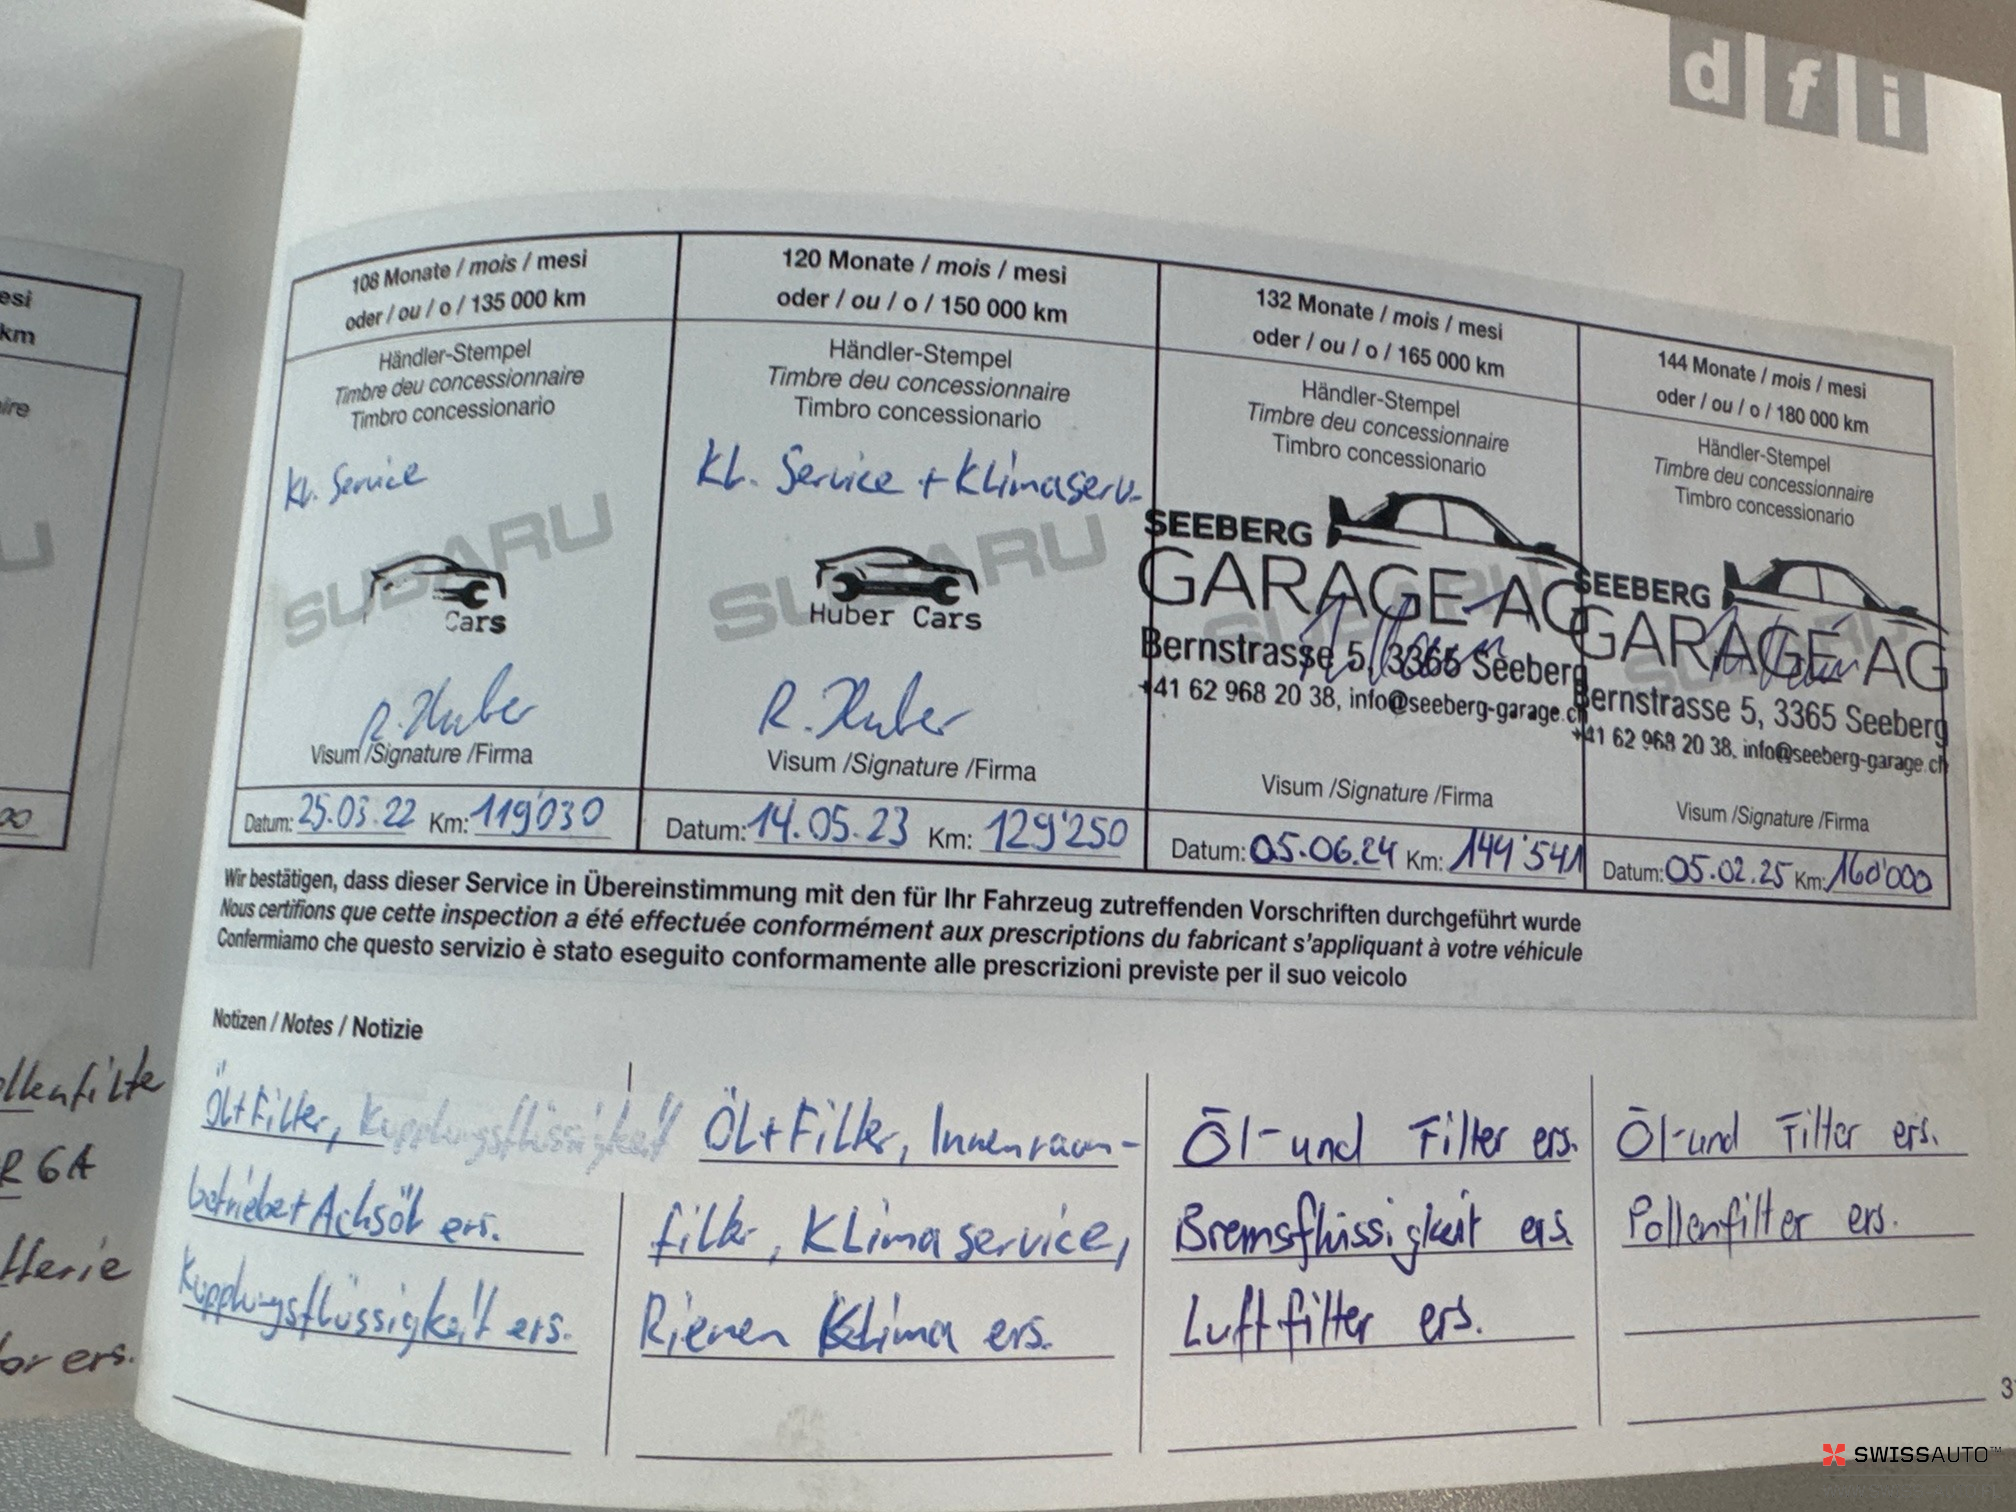 d f i
esi
km
ire
U
00
llenfilte
R 6A
tterie
or ers.
108 Monate / mois / mesi
oder / ou / o / 135 000 km
Händler-Stempel
Timbre deu concessionnaire
Timbro concessionario
Kl. Service
SUBARU
Cars
R. Huber
Visum /Signature /Firma
Datum: 25.03.22 Km: 119'030
120 Monate / mois / mesi
oder / ou / o / 150 000 km
Händler-Stempel
Timbre deu concessionnaire
Timbro concessionario
Kl. Service + Klimaserv.
SUBARU
Huber Cars
R. Huber
Visum /Signature /Firma
Datum: 14.05.23 Km: 129'250
132 Monate / mois / mesi
oder / ou / o / 165 000 km
Händler-Stempel
Timbre deu concessionnaire
Timbro concessionario
SEEBERG
GARAGE AG
Bernstrasse 5, 3365 Seeberg
+41 62 968 20 38, info@seeberg-garage.ch
Visum /Signature /Firma
Datum: 05.06.24 Km: 144'541
144 Monate / mois / mesi
oder / ou / o / 180 000 km
Händler-Stempel
Timbre deu concessionnaire
Timbro concessionario
SEEBERG
GARAGE AG
Bernstrasse 5, 3365 Seeberg
+41 62 968 20 38, info@seeberg-garage.ch
Visum /Signature /Firma
Datum: 05.02.25 Km: 160'000
Wir bestätigen, dass dieser Service in Übereinstimmung mit den für Ihr Fahrzeug zutreffenden Vorschriften durchgeführt wurde
Nous certifions que cette inspection a été effectuée conformément aux prescriptions du fabricant s'appliquant à votre véhicule
Confermiamo che questo servizio è stato eseguito conformamente alle prescrizioni previste per il suo veicolo
Notizen / Notes / Notizie
Öl+Filter, Kupplungsflüssigkeit
betriebe+Achsöl ers.
Kupplungsflüssigkeit ers.
Öl+Filter, Innenraum-
filter, Klimaservice,
Riemen Klima ers.
Öl- und Filter ers.
Bremsflüssigkeit ers.
Luftfilter ers.
Öl- und Filter ers.
Pollenfilter ers.
3
SWISSAUTO™